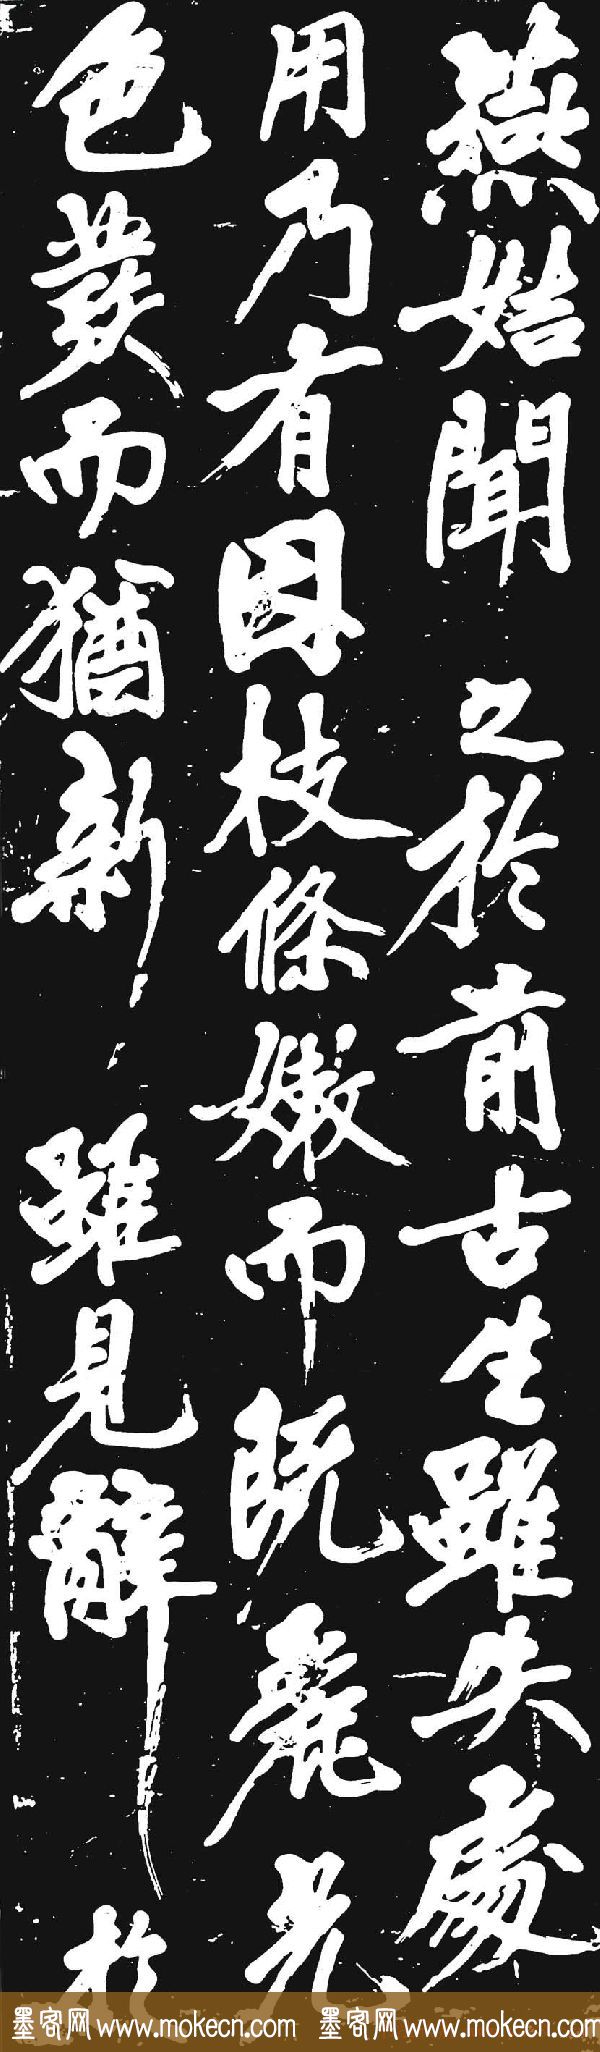 燕始聞之於前古生雖失處
用乃有因枝條嫩而既麗光
色發而猶新雖見辭於
墨客网 www.mokecn.com 墨客网 www.mokecn.com